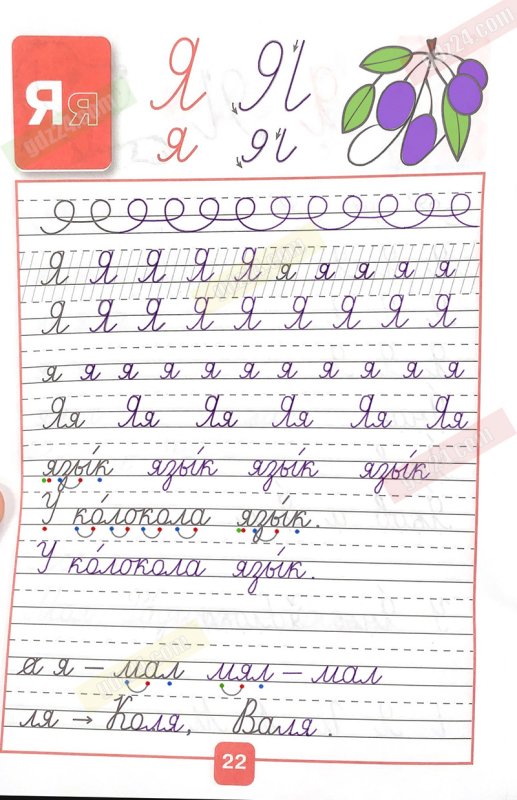 gdz24.com
Я я Я Я
я я
Я Я Я Я Я я я я я я
Я Я Я Я Я Я Я Я Я
я я я я я я я я я я я
Яя Яя Яя Яя Яя Яя
язы́к язы́к язы́к язы́к
У ко́локола язы́к.
У ко́локола язы́к.
а я – мал мял – мал
ля → Коля, Валя.
22